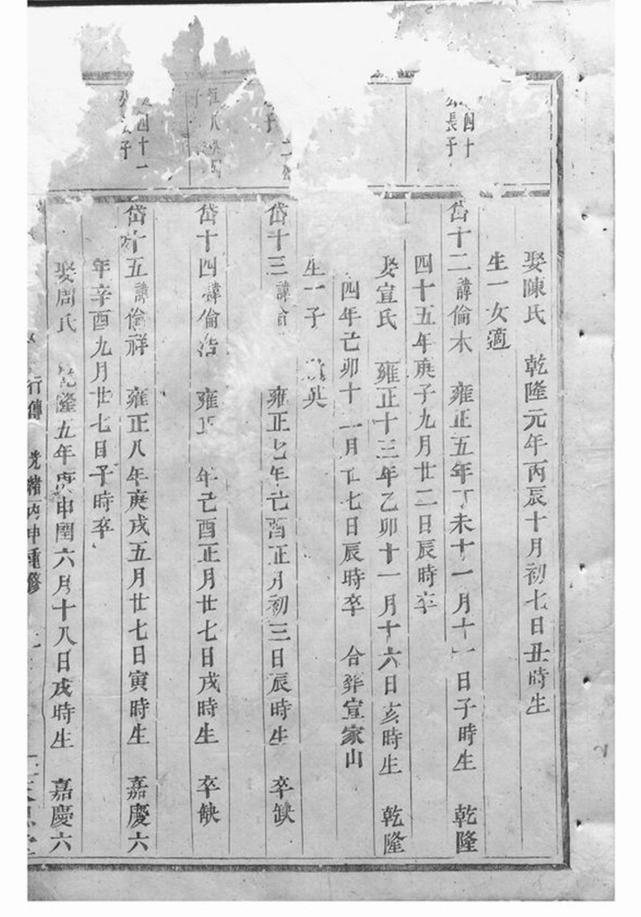 娶陳氏 乾隆元年丙辰十月初七日丑時生
生一女適
四十
長子
岱十二諱倫木 雍正五年丁未十一月十一日子時生 乾隆
四十五年庚子九月廿二日辰時卒
娶宣氏 雍正十三年乙卯十一月十六日亥時生 乾隆
四年己卯十一月廿七日辰時卒 合葬宣家山
生一子 英
二
子
岱十三諱 雍正七年己酉正月初三日辰時生 卒缺
八
岱十四諱倫浩 雍正 年己酉正月廿七日戌時生 卒缺
四十一
子
岱十五諱倫祥 雍正八年庚戌五月廿七日寅時生 嘉慶六
年辛酉九月廿七日子時卒
娶周氏 乾隆五年庚申閏六月十八日戌時生 嘉慶六
行傳 光緒丙申重修 九